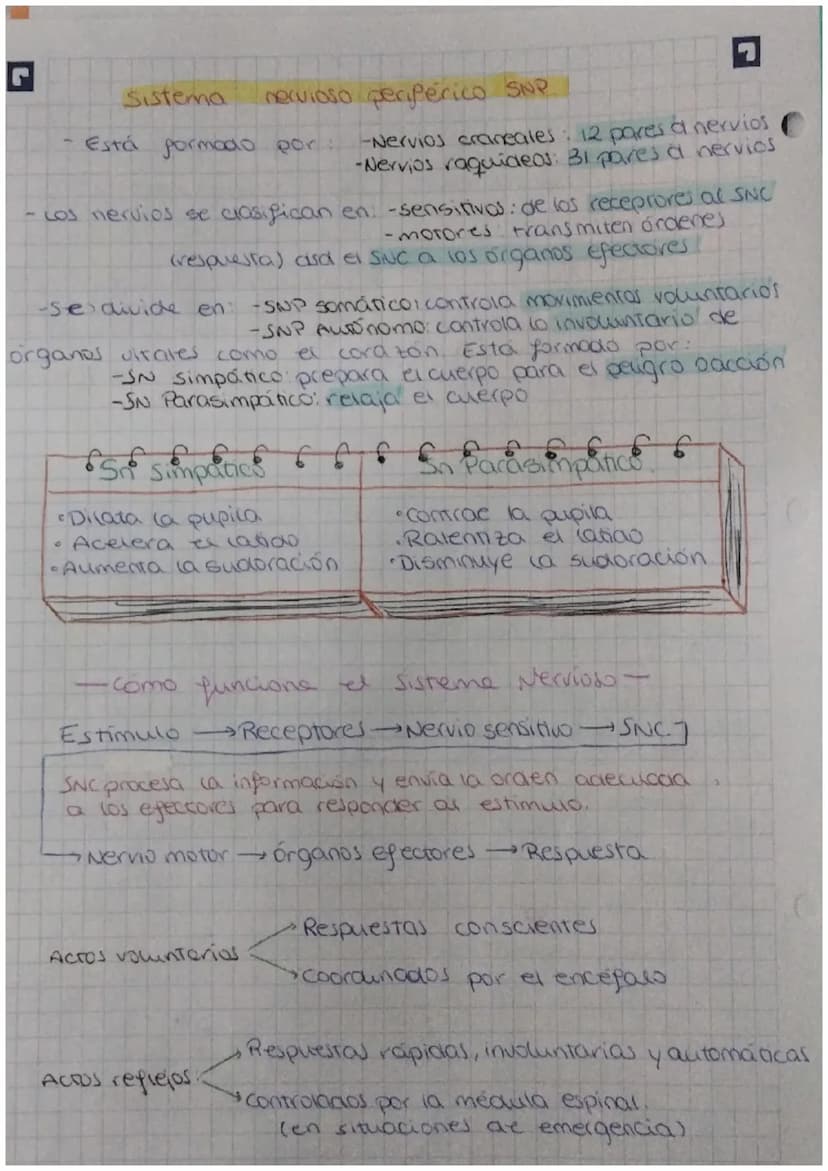 Sistema nervioso periférico SNP
- Está formado por: -Nervios craneales: 12 pares d nervios
-Nervios raquídeos: 31 pares d nervios
- Los nervios se clasifican en: -sensitivos: de los receptores al SNC
-motores: transmiten órdenes
(respuesta) dsd el SNC a los órganos efectores
-Se divide en: -SNP somático: controla movimientos voluntarios
-SNP Autónomo: controla lo involuntario de
órganos vitales como el corazón. Está formado por:
-SN simpático: prepara el cuerpo para el peligro o acción
-SN Parasimpático: relaja el cuerpo
Sn simpático
Sn Parasimpático
• Dilata la pupila
• Acelera el latido
• Aumenta la sudoración
• Contrae la pupila
• Ralentiza el latido
• Disminuye la sudoración
— Cómo funciona el Sistema Nervioso —
Estímulo → Receptores → Nervio sensitivo → SNC
SNC procesa la información y envía la orden adecuada
a los efectores para responder al estímulo.
→ Nervio motor → órganos efectores → Respuesta
Respuestas conscientes
Actos voluntarios
Coordinados por el encéfalo
Respuestas rápidas, involuntarias y automáticas
Actos reflejos:
Controlados por la médula espinal.
(en situaciones de emergencia)